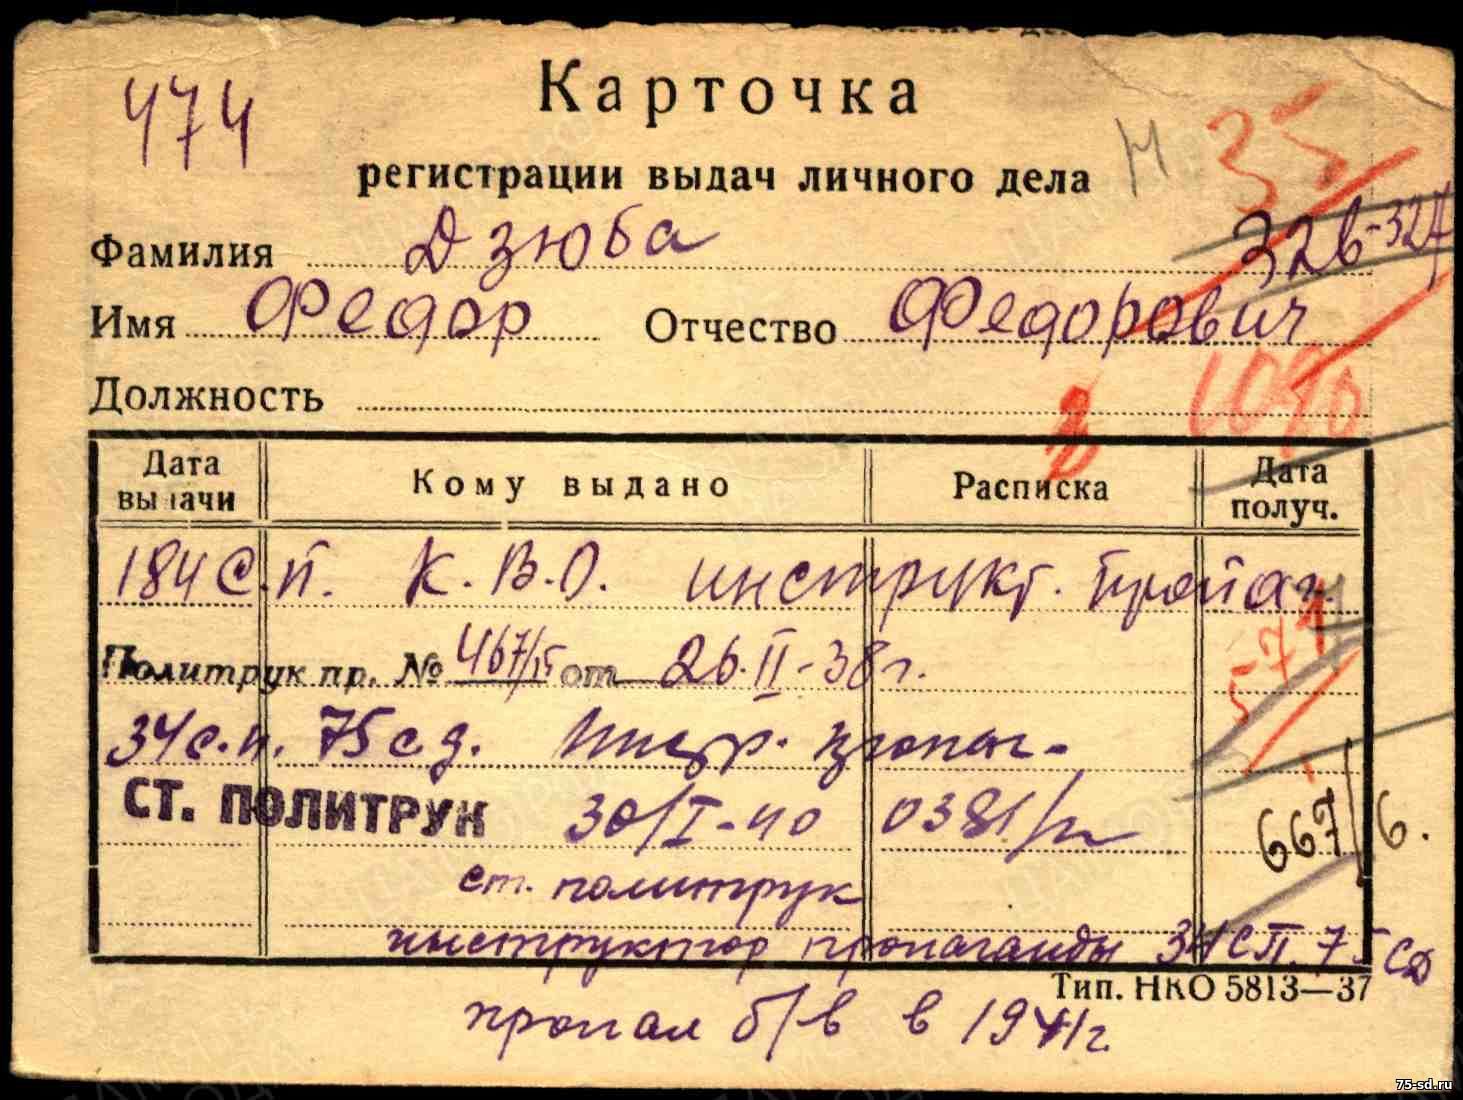 474
Карточка
регистрации выдач личного дела
Н 35
Фамилия Дзюба 326-327
Имя Федор Отчество Федорович
Должность
1090
Дата выдачи Кому выдано Расписка Дата получ.
184 с.п. К.В.О. инструкт. пропаг.
571
Политрук пр. № 467/п от 26.II-38г.
34 с.п. 75 с.д. Инстр. пропаг.
СТ. ПОЛИТРУК 30/I-40 0381/п
667/6.
ст. политрук
инструктор пропаганды 34 СП 75 СД
Тип. НКО 5813—37
пропал б/в в 1941г.
75-sd.ru